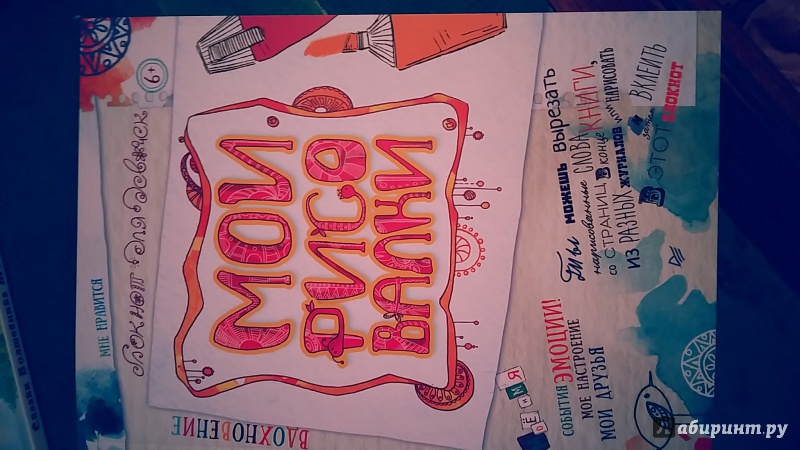 МНЕ НРАВИТСЯ
Блокнот для девочек
6+
ВДОХНОВЕНИЕ
МОИ
РИСО
ВАЛКИ
ИМЯ
СОБЫТИЯ ЭМОЦИИ!
МОЕ НАСТРОЕНИЕ
МОИ ДРУЗЬЯ
Ты МОЖЕШЬ ВЫРЕЗАТЬ
нарисованные СЛОВА
со СТРАНИЦ В конце КНИГИ,
ИЗ РАЗНЫХ ЖУРНАЛОВ ИЛИ НАРИСОВАТЬ
затем ВКЛЕИТЬ
В ЭТОТ БЛОКНОТ
абиринт.ру